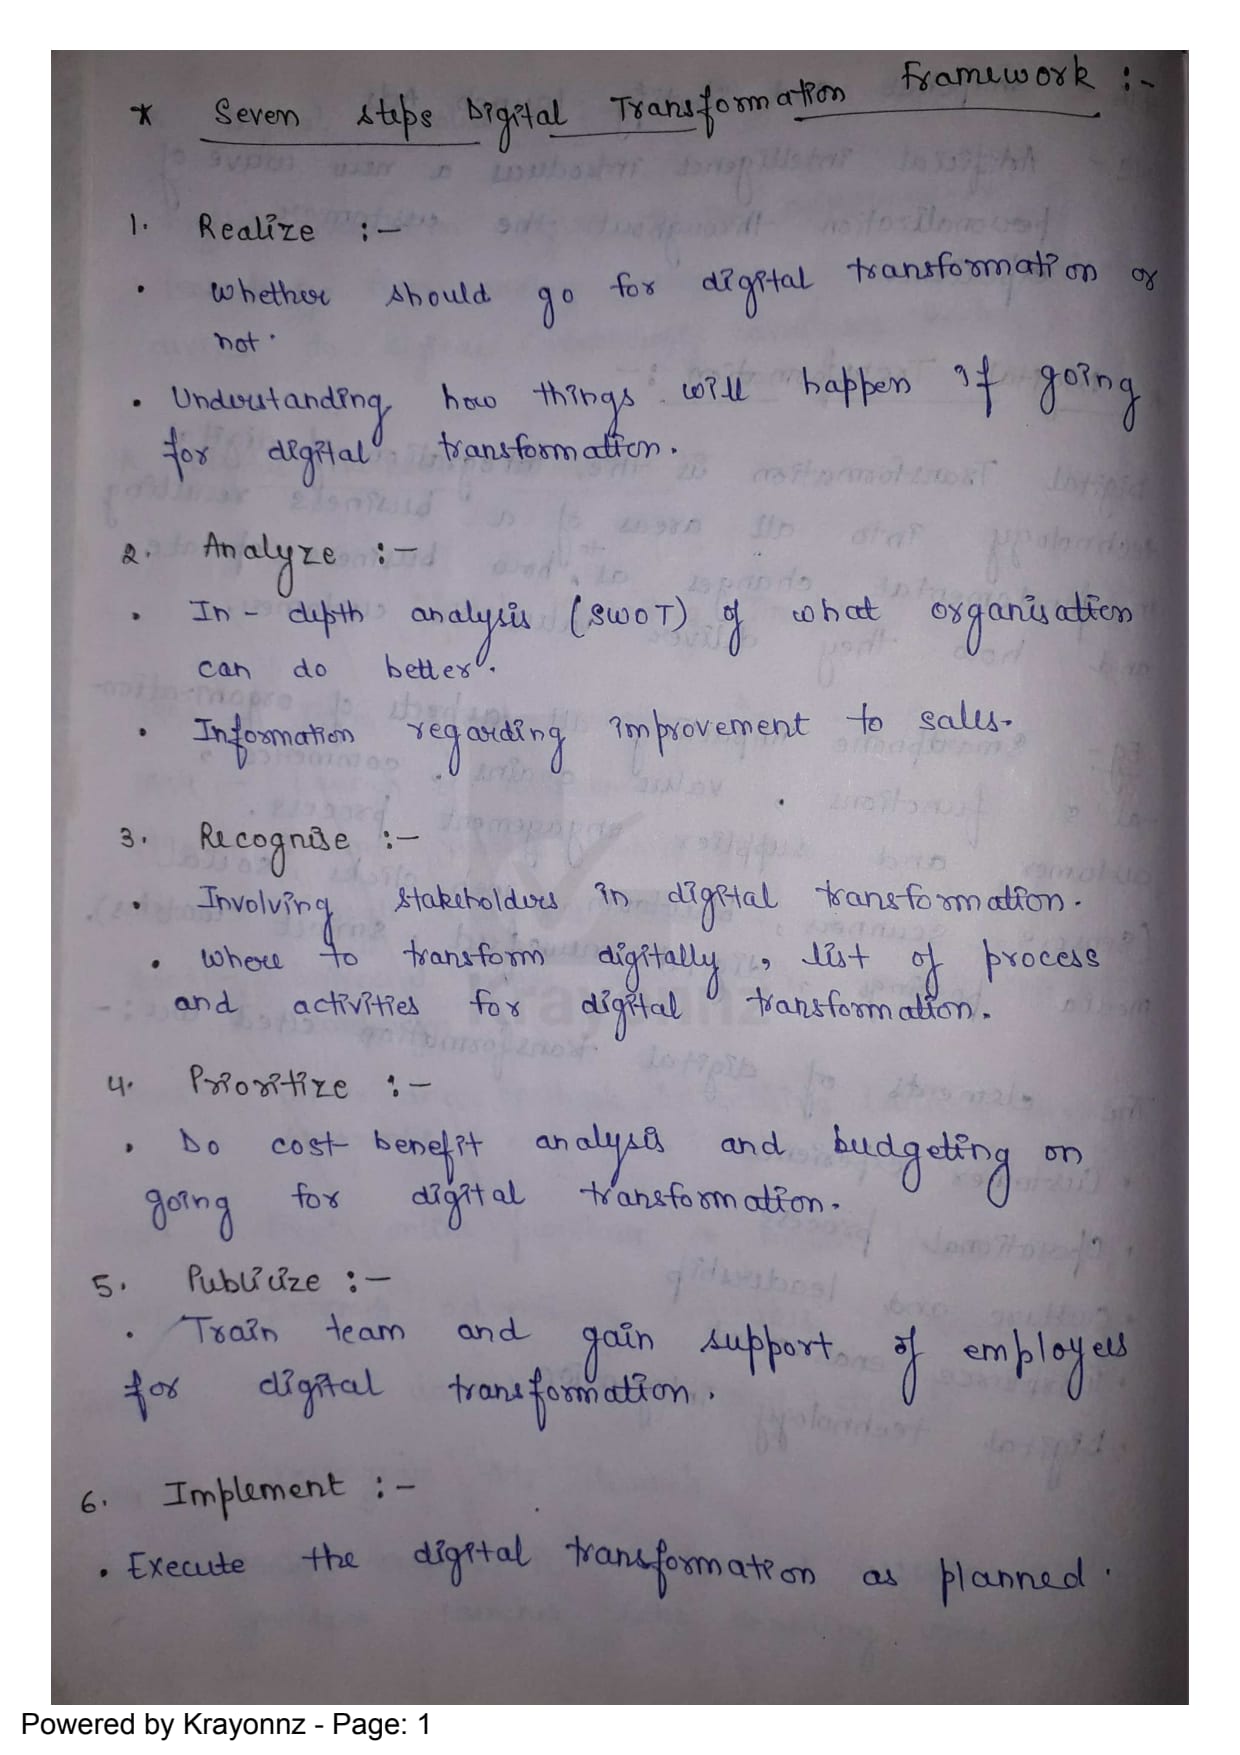 * Seven steps Digital Transformation Framework :-
1. Realize :-
• Whether should go for digital transformation or
not.
• Understanding how things will happen if going
for digital transformation.
2. Analyze :-
• In-depth analysis (SWOT) of what organisation
can do better.
• Information regarding improvement to sales.
3. Recognise :-
• Involving stakeholders in digital transformation.
• Where to transform digitally, list of process
and activities for digital transformation.
Krayonnz
4. Prioritize :-
• Do cost benefit analysis and budgeting on
going for digital transformation.
5. Publicize :-
• Train team and gain support of employees
for digital transformation.
6. Implement :-
• Execute the digital transformation as planned.
Powered by Krayonnz - Page: 1